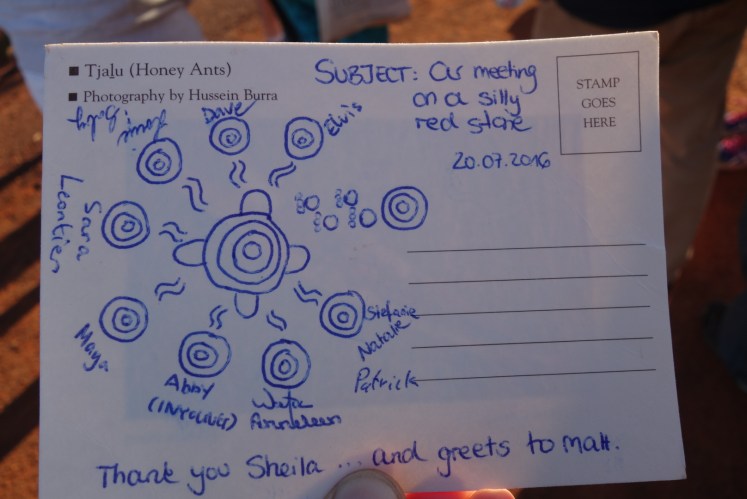 ■ Tjaḻu (Honey Ants)
■ Photography by Hussein Burra
SUBJECT: Our meeting
on a silly
red stone
20.07.2016
STAMP
GOES
HERE
Dave
Elvis
Sara
Leontien
Maya
Abby
Annaleen
Stefanie
Natalie
Patrick
Thank you Sheila ... and greets to Matt.